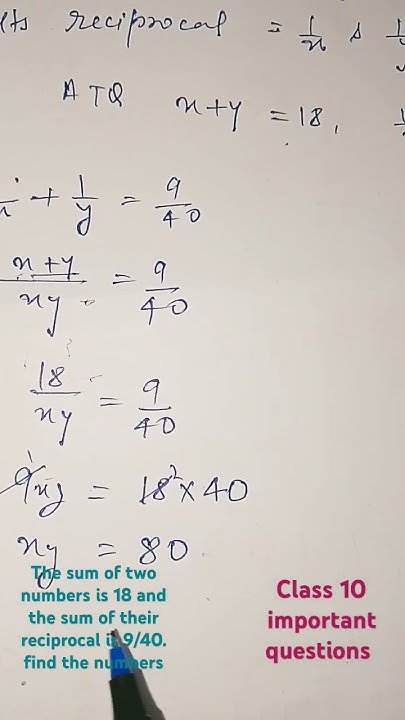 Its reciprocal = 1/x &
ATQ x+y = 18,
+ 1/y = 9/40
x+y/xy = 9/40
18/xy = 9/40
9xy = 18² × 40
xy = 80
The sum of two
numbers is 18 and
the sum of their
reciprocal is 9/40.
find the numbers
Class 10
important
questions